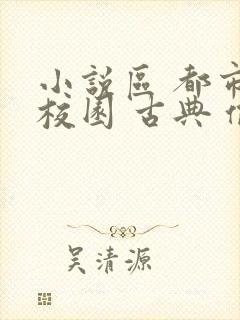 小說區 都市
校園 古典
吴清源